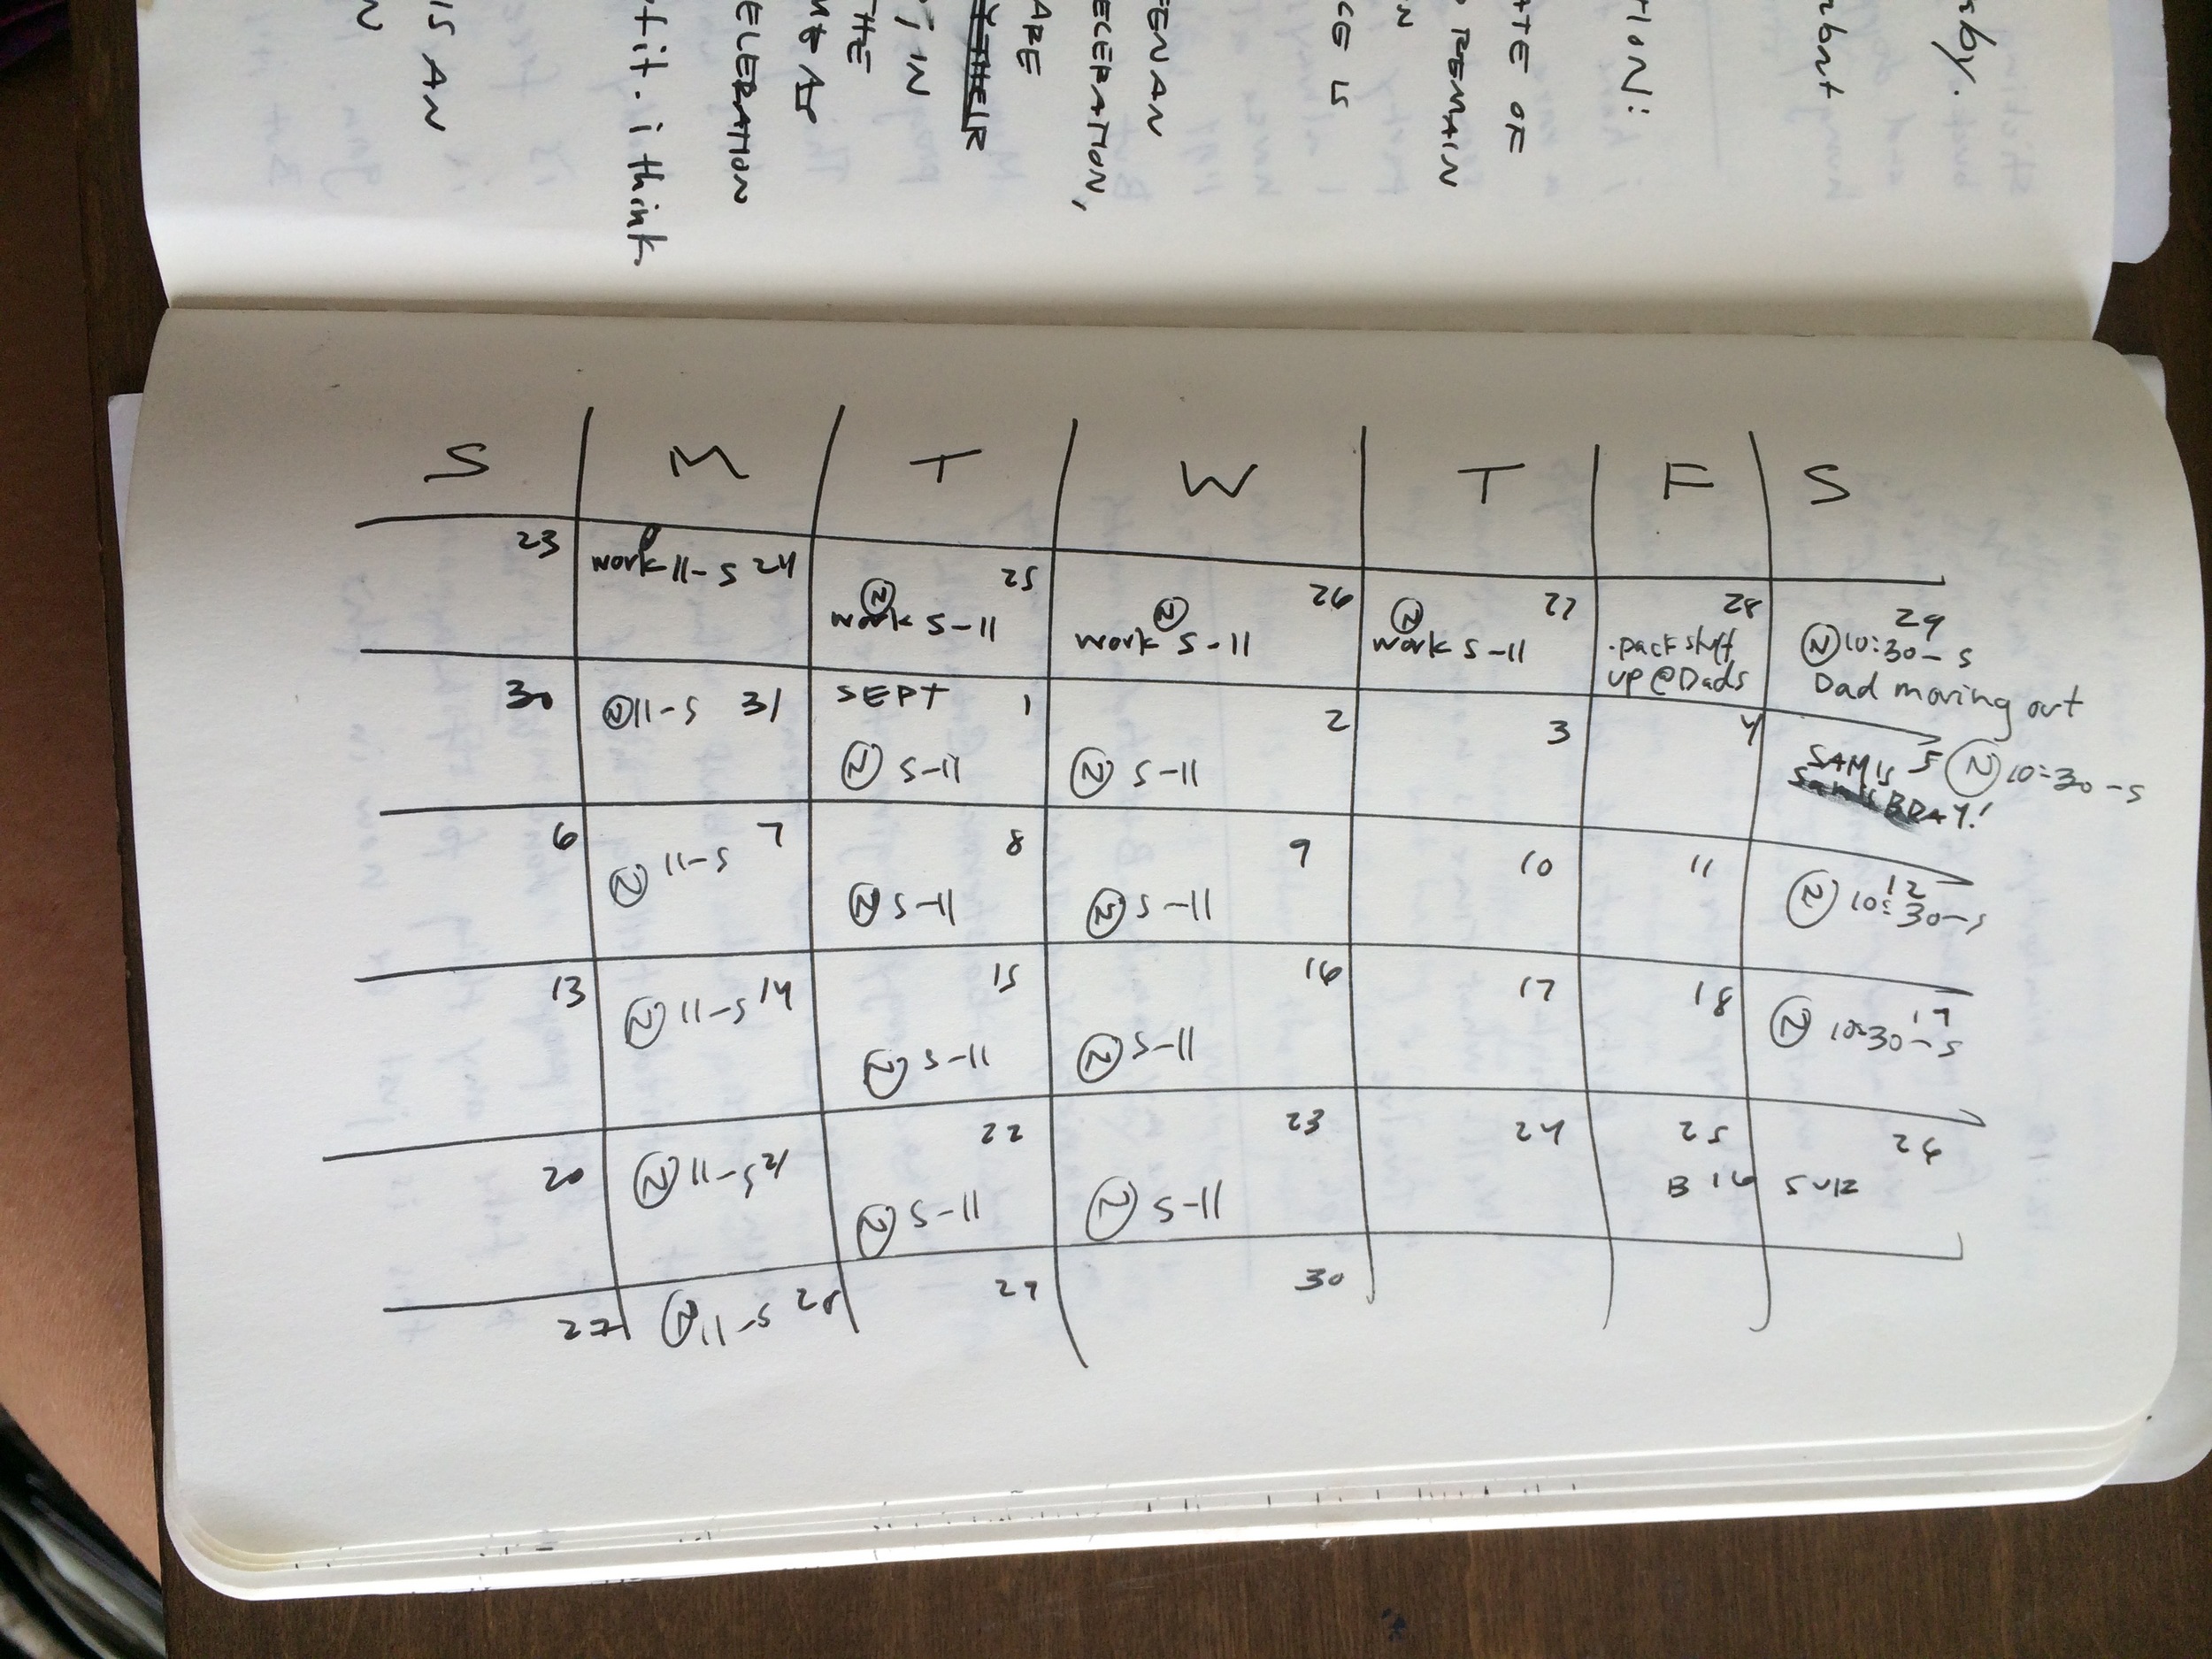 S M T W T F S
23 work 11-5 24 25 26 27 28 29
② work 5-11 ② work 5-11 ② work 5-11 .pack stuff up @Dads ② 10:30-5 Dad moving out
30 ② 11-5 31 SEPT 1 2 3 4 5
② 5-11 ② 5-11 SAM'S BDAY! ② 10:30-5
6 7 8 9 10 11 12
② 11-5 ② 5-11 ② 5-11 ② 10:30-5
13 14 15 16 17 18 19
② 11-5 ② 5-11 ② 5-11 ② 10:30-5
20 21 22 23 24 25 26
② 11-5 ② 5-11 ② 5-11 B 16
27 ② 11-5 28 29 30
sby.
TION:
ATE OF
REMAIN
CE IS
ARE
THEIR
; IN
THE
AS
fit. i think
IS AN
N